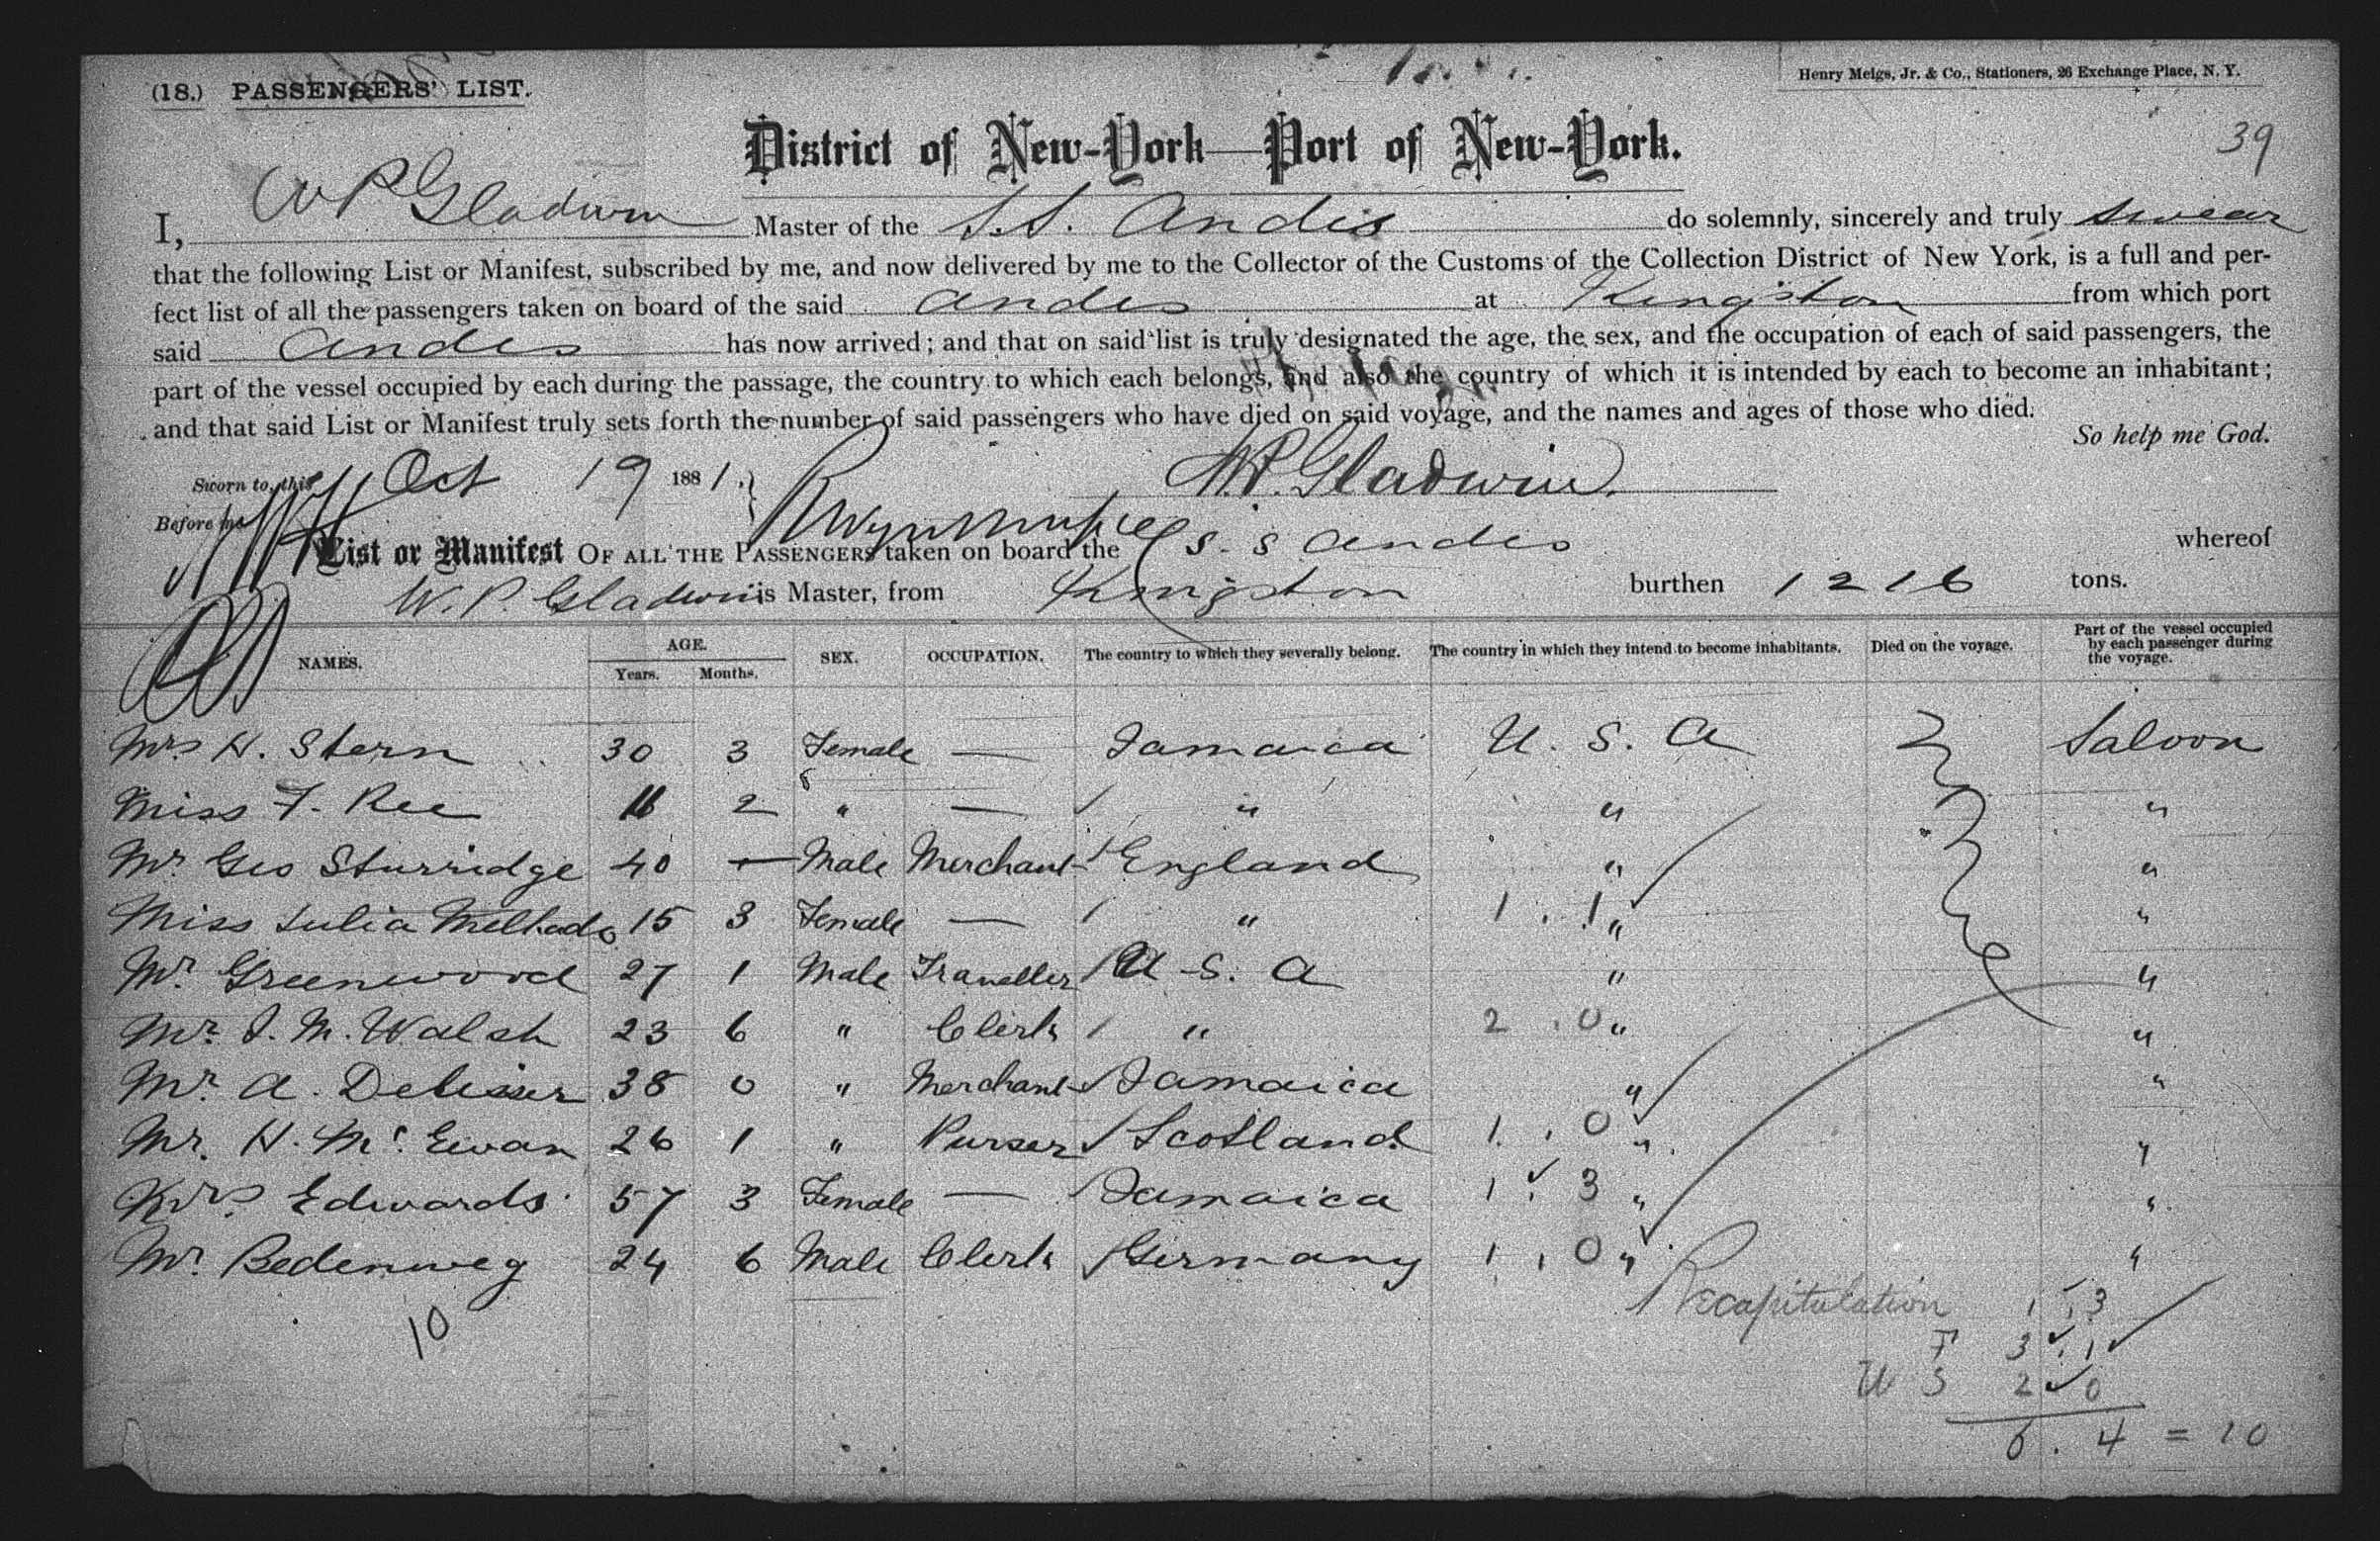 (18.) PASSENGERS' LIST.
Henry Meigs, Jr. & Co., Stationers, 26 Exchange Place, N. Y.
39
District of New-York—Port of New-York.
I, W P Gladwin Master of the S.S. Andes do solemnly, sincerely and truly swear
that the following List or Manifest, subscribed by me, and now delivered by me to the Collector of the Customs of the Collection District of New York, is a full and per-
fect list of all the passengers taken on board of the said Andes at Kingston from which port
said Andes has now arrived; and that on said list is truly designated the age, the sex, and the occupation of each of said passengers, the
part of the vessel occupied by each during the passage, the country to which each belongs, and also the country of which it is intended by each to become an inhabitant;
and that said List or Manifest truly sets forth the number of said passengers who have died on said voyage, and the names and ages of those who died.
So help me God.
Sworn to, this Oct 19 1881. W.P. Gladwin.
Before me
List or Manifest OF ALL THE PASSENGERS taken on board the S. S Andes whereof
W. P. Gladwin is Master, from Kingston burthen 1216 tons.
NAMES. AGE. Years. Months. SEX. OCCUPATION. The country to which they severally belong. The country in which they intend to become inhabitants. Died on the voyage. Part of the vessel occupied by each passenger during the voyage.
Mrs H. Stern 30 3 Female — Jamaica U. S. A Saloon
Miss F. Ree 2 " — " " "
Mr. Geo Sturridge 40 — Male Merchant England " "
Miss Julia Melhado 15 3 Female — " 1 . 1 " "
Mr. Greenwood 27 1 Male Traveller U. S. A " "
Mr. J. M. Walsh 23 6 " Clerk " 2 . 0 " "
Mr. A. Delisser 38 0 " Merchant Jamaica " "
Mr. H. Mc. Ewan 26 1 " Purser Scotland 1 . 0 " "
Mrs. Edwards 57 3 Female — Jamaica 1 . 3 " "
Mr. Bedenweg 24 6 Male Clerk Germany 1 . 0 " "
10
Recapitulation 1 . 3
F 3 . 1
U S 2 0
6 . 4 = 10